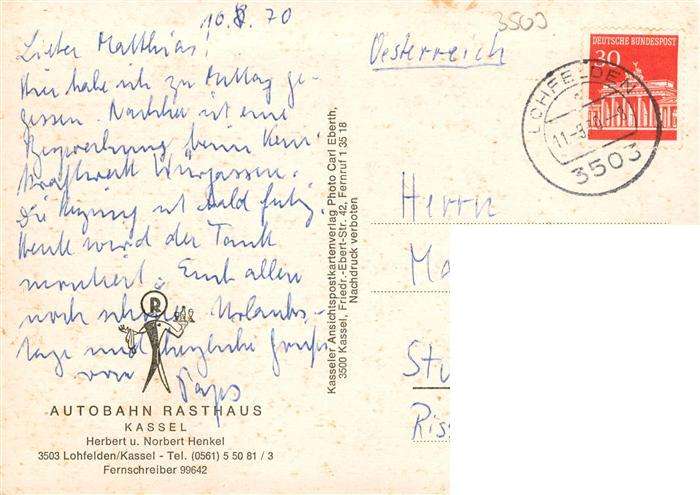 10.8.70
Lieber Matthias!
Hier habe ich zu Mittag ge-
gessen. Nachher ist eine
beim Kern-
kraftwerk Würgassen.
Die ist bald fertig.
Heute wird der Tank
montiert. Euch allen
noch schöne Urlaubs-
tage und herzliche Grüße
von Paps
R
AUTOBAHN RASTHAUS
KASSEL
Herbert u. Norbert Henkel
3503 Lohfelden/Kassel - Tel. (0561) 5 50 81 / 3
Fernschreiber 99642
Kasseler Ansichtspostkartenverlag Photo Carl Eberth,
3500 Kassel, Friedr.-Ebert-Str. 42, Fernruf 1 35 18
Nachdruck verboten
3503
Oesterreich
DEUTSCHE BUNDESPOST
30
LOHFELDEN
3503
Herrn
Ma
Stu
Ris